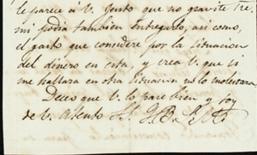 le parece a V. justo que no gravite
mi podrá tambien entregarlo, así como,
el gasto que considere por la situacion
del dinero en esta, y crea V. que si
me hallara en otra situacion no lo molestara.
Deseo que V. lo pase bien y soy
de V. Atento S. S. Q. B. S. M.